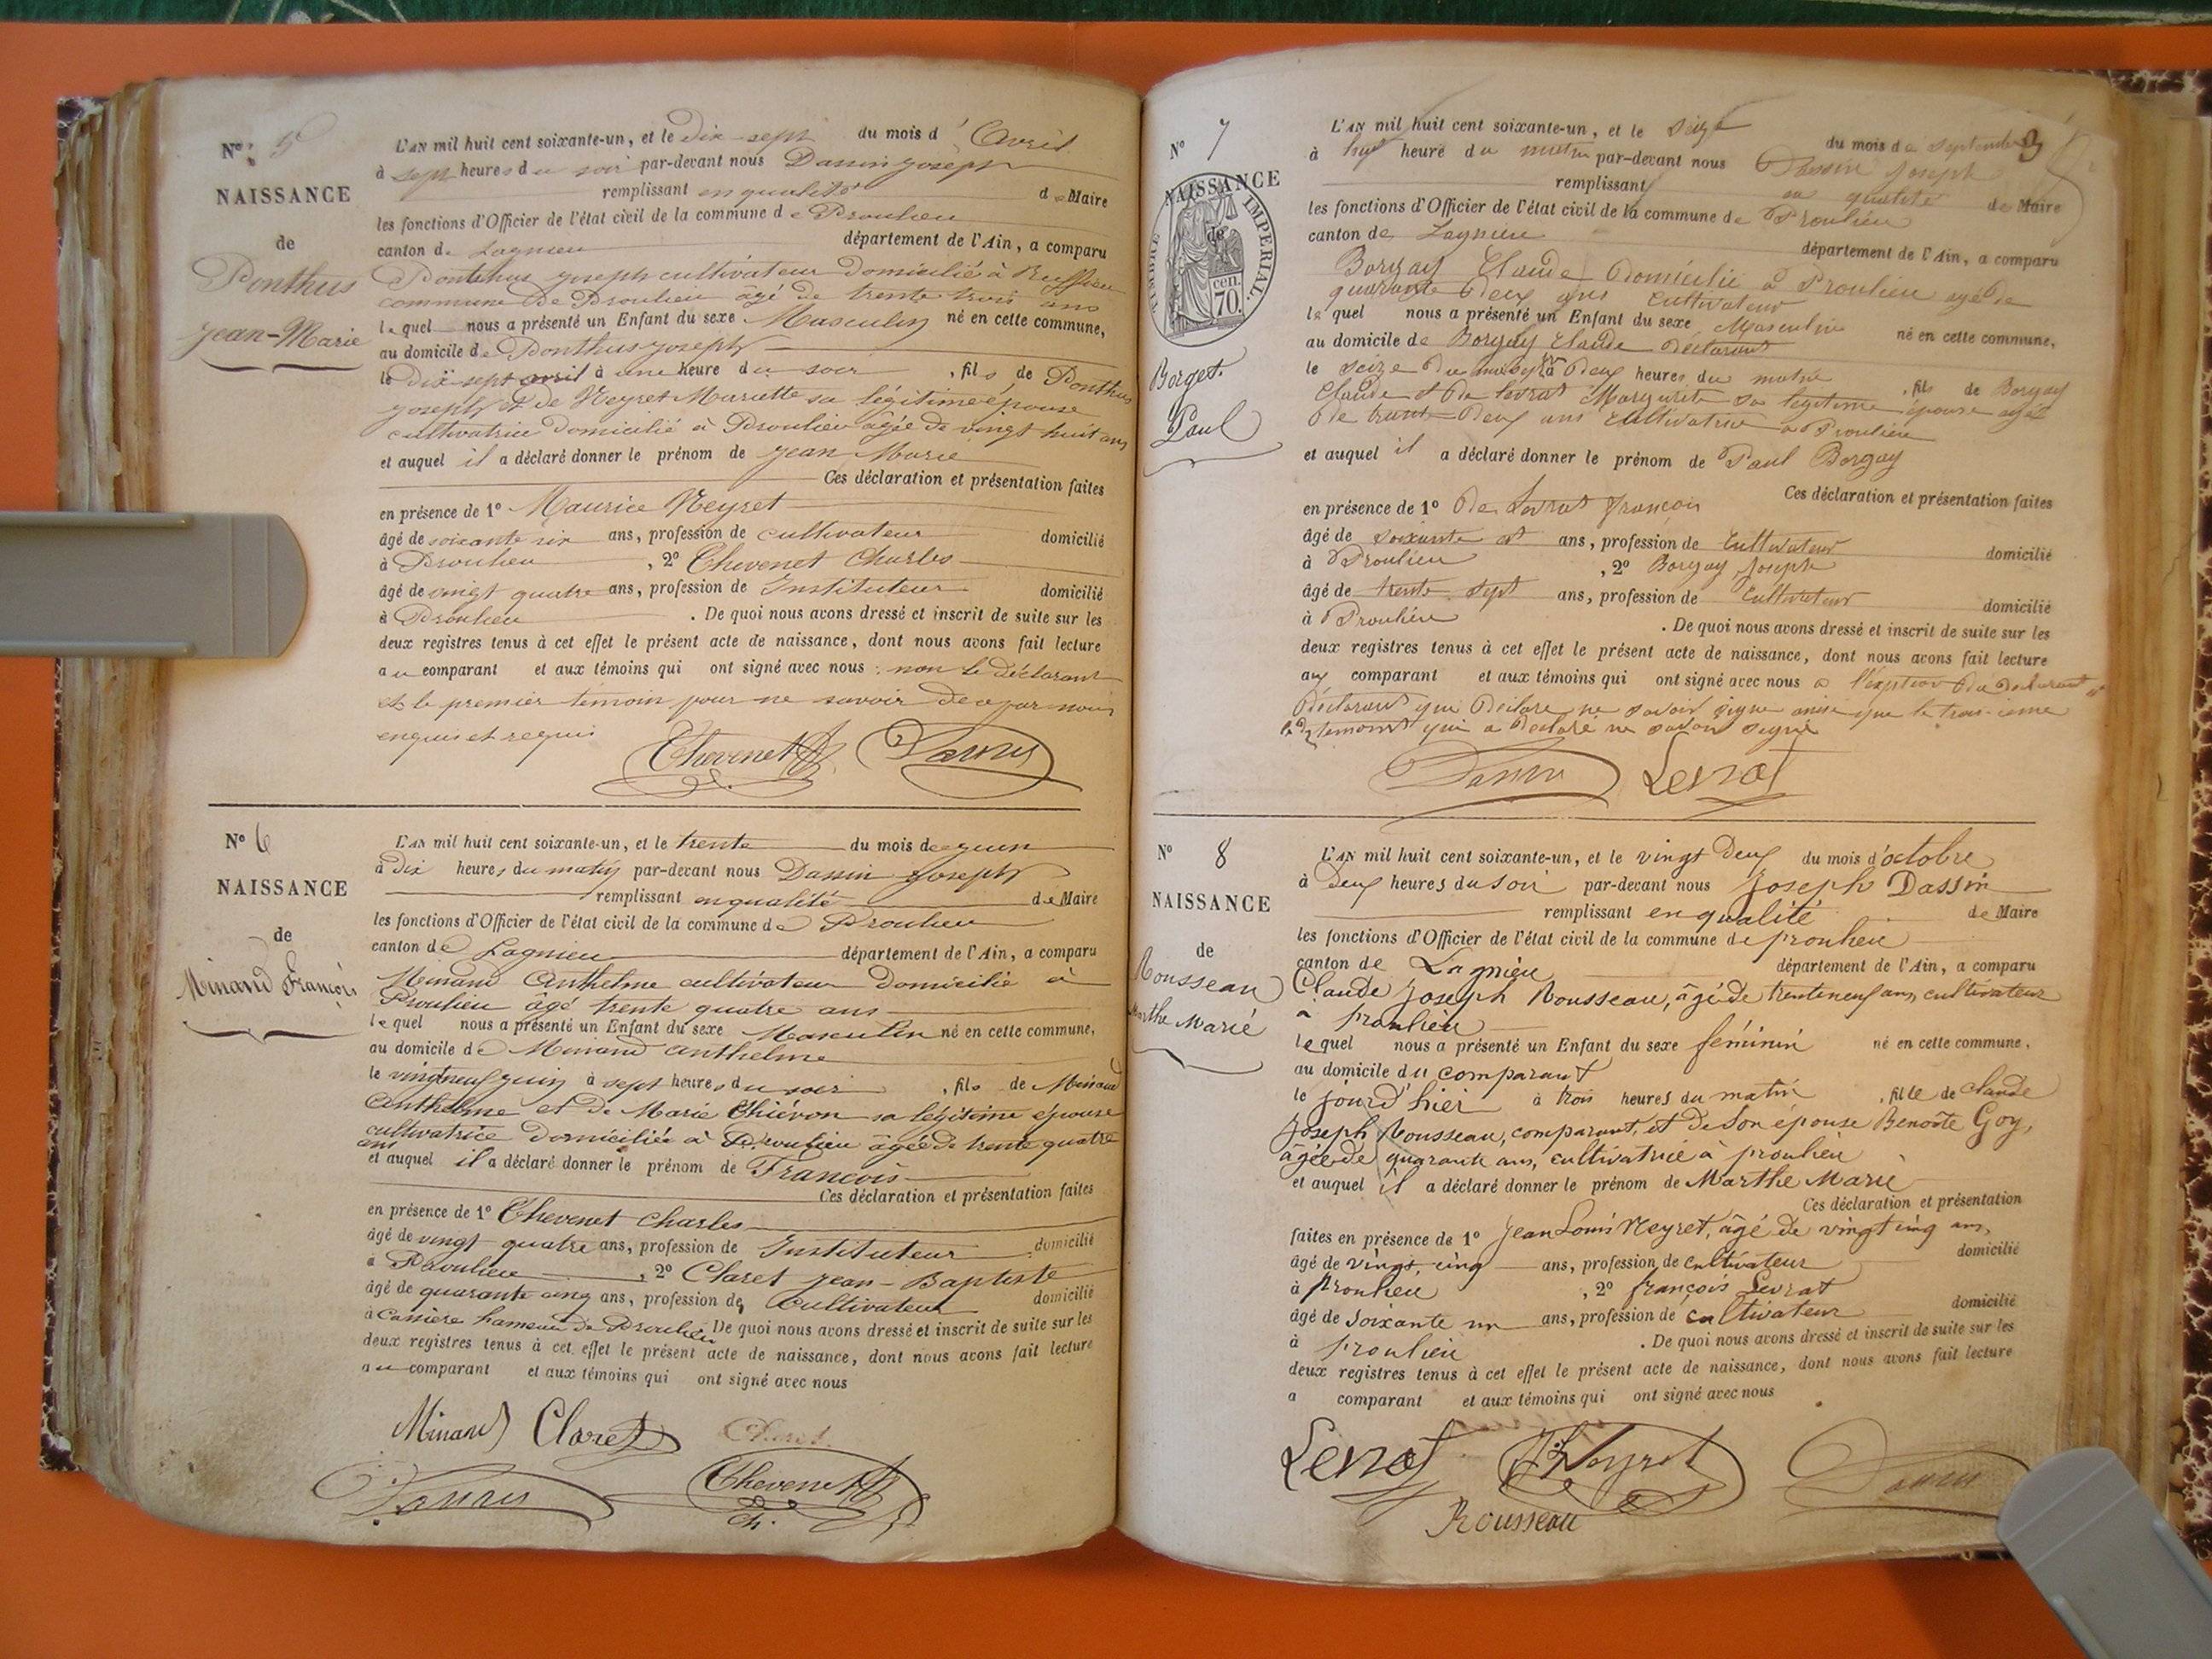 N° 5
NAISSANCE
de
Ponthus
Jean-Marie
L'AN mil huit cent soixante-un, et le dix-sept du mois d'Avril
à sept heures du soir par-devant nous Dassin Joseph
remplissant en qualité de Maire
les fonctions d'Officier de l'état civil de la commune de Proulieu
canton de Lagnieu département de l'Ain, a comparu
Ponthus Joseph cultivateur domicilié à
commune de Proulieu âgé de trente trois ans
lequel nous a présenté un Enfant du sexe Masculin né en cette commune,
au domicile de Ponthus Joseph
le dix sept avril à une heure du soir, fils de Ponthus
Joseph et de Neyret Mariette sa légitime épouse
cultivatrice domicilié à Proulieu âgée de vingt huit ans
et auquel il a déclaré donner le prénom de Jean Marie
Ces déclaration et présentation faites
en présence de 1° Maurice Neyret
âgé de soixante six ans, profession de cultivateur domicilié
à Proulieu, 2° Chevenet Charles
âgé de vingt quatre ans, profession de Instituteur domicilié
à Proulieu. De quoi nous avons dressé et inscrit de suite sur les
deux registres tenus à cet effet le présent acte de naissance, dont nous avons fait lecture
au comparant et aux témoins qui ont signé avec nous : non le déclarant
et le premier temoin pour ne savoir de ce par nous
enquis et requis
Chevenet Dassin
N° 6
NAISSANCE
de
Minand François
L'AN mil huit cent soixante-un, et le trente du mois de juin
à dix heures du matin par-devant nous Dassin Joseph
remplissant en qualité de Maire
les fonctions d'Officier de l'état civil de la commune de Proulieu
canton de Lagnieu département de l'Ain, a comparu
Minand Anthelme cultivateur domicilié à
Proulieu âgé trente quatre ans
lequel nous a présenté un Enfant du sexe Masculin né en cette commune,
au domicile de Minand Anthelme
le vingt neuf juin à sept heures du soir, fils de Minand
Anthelme et de Marie Thiévon sa légitime épouse
cultivatrice domiciliée à Proulieu âgée de trente quatre
ans
et auquel il a déclaré donner le prénom de François
Ces déclaration et présentation faites
en présence de 1° Chevenet Charles
âgé de vingt quatre ans, profession de Instituteur domicilié
à Proulieu, 2° Claret Jean-Baptiste
âgé de quarante cinq ans, profession de Cultivateur domicilié
à hameau de Proulieu De quoi nous avons dressé et inscrit de suite sur les
deux registres tenus à cet effet le présent acte de naissance, dont nous avons fait lecture
au comparant et aux témoins qui ont signé avec nous
Minand Claret Claret
Dassin Chevenet
Ch.
N° 7
NAISSANCE
de
TIMBRE IMPERIAL.
70. cen.
Borget
Paul
L'AN mil huit cent soixante-un, et le seize du mois de septembre
à huit heure du matin par-devant nous Dassin Joseph
remplissant en qualité de Maire
les fonctions d'Officier de l'état civil de la commune de Proulieu
canton de Lagnieu département de l'Ain, a comparu
Borgay Claude domicilié à Proulieu agé de
quarante deux ans cultivateur
lequel nous a présenté un Enfant du sexe Masculin né en cette commune,
au domicile de Borgay Claude déclarant
le seize du à deux heures du matin, fils de Borgay
Claude et de Levrat Margurite sa légitime épouse agée
de trente deux ans cultivatrice à Proulieu
et auquel il a déclaré donner le prénom de Paul Borgay
Ces déclaration et présentation faites
en présence de 1° de Levrat françois
âgé de soixante et ans, profession de Cultivateur domicilié
à Proulieu, 2° Borgay Joseph
âgé de trente sept ans, profession de Cultivateur domicilié
à Proulieu. De quoi nous avons dressé et inscrit de suite sur les
deux registres tenus à cet effet le présent acte de naissance, dont nous avons fait lecture
aux comparant et aux témoins qui ont signé avec nous a du déclarant
déclarant qui déclare ne savoir signe que le
temoins qui a déclaré ne savoir
Dassin Levrat
N° 8
NAISSANCE
de
Rousseau
Marthe Marie
L'AN mil huit cent soixante-un, et le vingt deux du mois d'octobre
à deux heures du soir par-devant nous Joseph Dassin
remplissant en qualité de Maire
les fonctions d'Officier de l'état civil de la commune de proulieu
canton de Lagnieu département de l'Ain, a comparu
Claude Joseph Rousseau, âgé de trente neuf ans, cultivateur
à proulieu
lequel nous a présenté un Enfant du sexe féminin né en cette commune,
au domicile du comparant
le jourd'hier à trois heures du matin, fille de Claude
Joseph Rousseau, comparant, et de son épouse Benoîte Goy,
âgée de quarante ans, cultivatrice à proulieu
et auquel il a déclaré donner le prénom de Marthe Marie
Ces déclaration et présentation
faites en présence de 1° Jean Louis Neyret, âgé de vingt cinq ans,
âgé de vingt cinq ans, profession de cultivateur domicilié
à Proulieu, 2° françois Levrat
âgé de soixante un ans, profession de cultivateur domicilié
à proulieu. De quoi nous avons dressé et inscrit de suite sur les
deux registres tenus à cet effet le présent acte de naissance, dont nous avons fait lecture
a comparant et aux témoins qui ont signé avec nous
Levrat Neyret Dassin
Rousseau